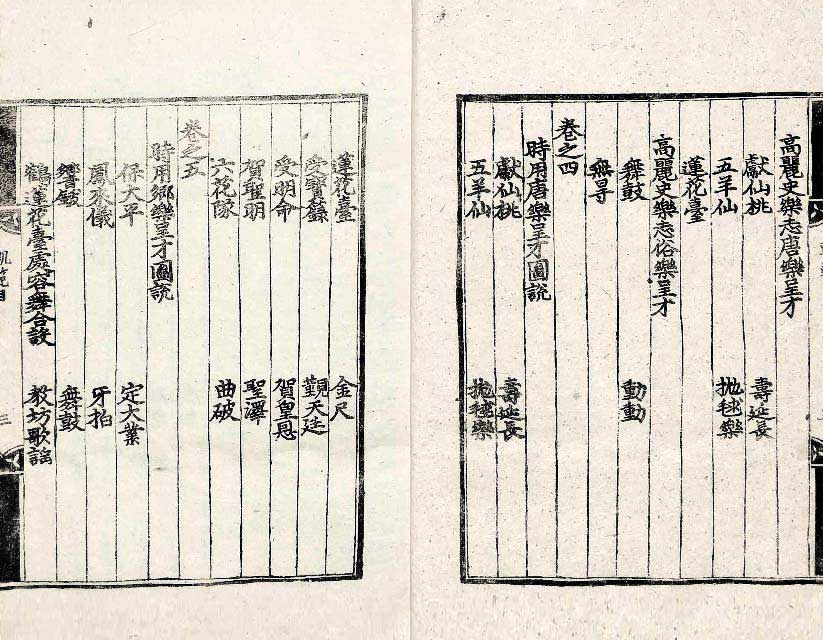 高麗史樂志唐樂呈才
獻仙桃 壽延長
五羊仙 抛毬樂
蓮花臺
高麗史樂志俗樂呈才
舞鼓 動動
無㝵
卷之四
時用唐樂呈才圖說
獻仙桃 壽延長
五羊仙 抛毬樂
蓮花臺 金尺
受寶籙 覲天廷
受明命 賀皇恩
賀聖明 聖澤
六花隊 曲破
卷之五
時用鄉樂呈才圖說
保大平 定大業
鳳來儀 牙拍
響鈸 舞鼓
鶴蓮花臺處容舞合設 教坊歌謠